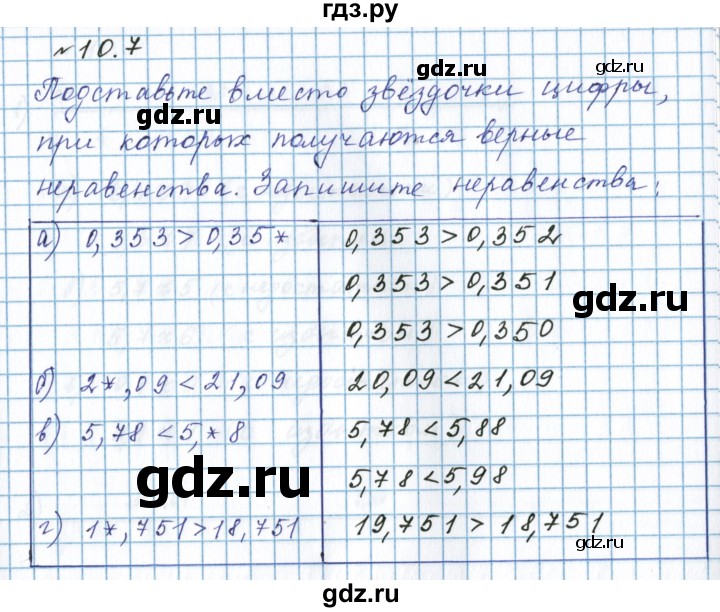 гдз.ру
№10.7
Подставьте вместо звёздочки цифры,
при которых получаются верные
неравенства. Запишите неравенства:
а) 0,353 > 0,35*
0,353 > 0,352
0,353 > 0,351
0,353 > 0,350
б) 2*,09 < 21,09
20,09 < 21,09
в) 5,78 < 5,*8
5,78 < 5,88
5,78 < 5,98
г) 1*,751 > 18,751
19,751 > 18,751
gdz.ru
gdz.ru
gdz.ru
gdz.ru
gdz.ru
gdz.ru
gdz.ru